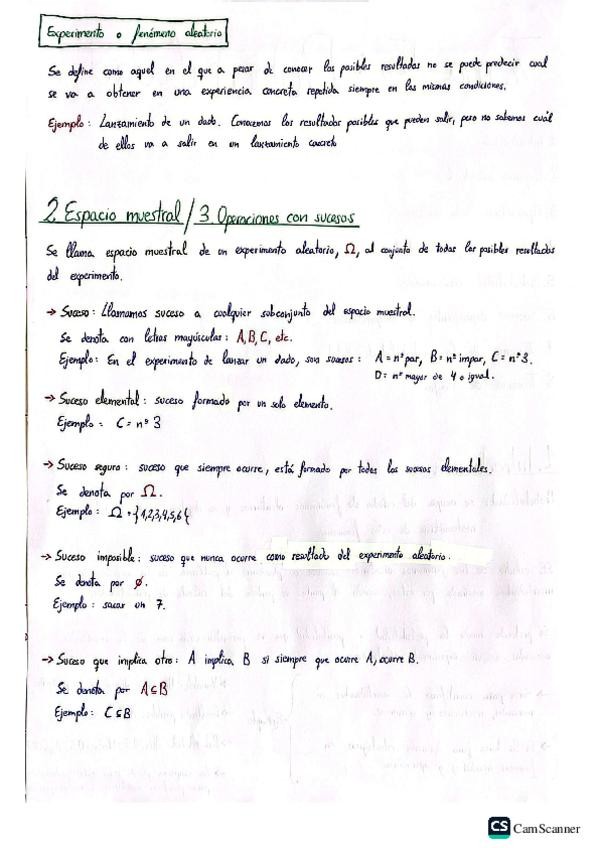 Experimento o fenómeno aleatorio
Se define como aquel en el que a pesar de conocer los posibles resultados no se puede predecir cual
se va a obtener en una experiencia concreta repetida siempre en las mismas condiciones.
Ejemplo: Lanzamiento de un dado. Conocemos los resultados posibles que pueden salir, pero no sabemos cuál
de ellos va a salir en un lanzamiento concreto
2. Espacio muestral / 3. Operaciones con sucesos
Se llama espacio muestral de un experimento aleatorio, Ω, al conjunto de todos los posibles resultados
del experimento.
→ Suceso: Llamamos suceso a cualquier subconjunto del espacio muestral.
Se denota con letras mayúsculas: A, B, C, etc.
Ejemplo: En el experimento de lanzar un dado, son sucesos: A = nº par, B = nº impar, C = nº 3.
D = nº mayor de 4 o igual.
→ Suceso elemental: suceso formado por un solo elemento.
Ejemplo: C = nº 3
→ Suceso seguro: suceso que siempre ocurre, está formado por todos los sucesos elementales.
Se denota por Ω.
Ejemplo: Ω = {1,2,3,4,5,6{
→ Suceso imposible: suceso que nunca ocurre como resultado del experimento aleatorio.
Se denota por ø.
Ejemplo: sacar un 7.
→ Suceso que implica otro: A implica B si siempre que ocurre A, ocurre B.
Se denota por A⊆B
Ejemplo: C⊆B
CS CamScanner